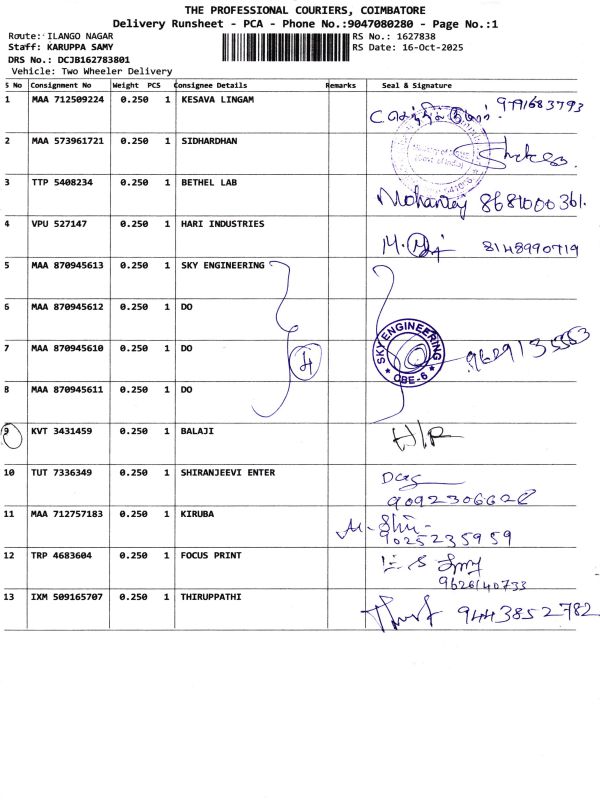 THE PROFESSIONAL COURIERS, COIMBATORE
Delivery Runsheet - PCA - Phone No.:9047080280 - Page No.:1
Route: ILANGO NAGAR RS No.: 1627838
Staff: KARUPPA SAMY RS Date: 16-Oct-2025
DRS No.: DCJB162783801
Vehicle: Two Wheeler Delivery
S No Consignment No Weight PCS Consignee Details Remarks Seal & Signature
1 MAA 712509224 0.250 1 KESAVA LINGAM
2 MAA 573961721 0.250 1 SIDHARDHAN
3 TTP 5408234 0.250 1 BETHEL LAB Mohantey 8681000361.
4 VPU 527147 0.250 1 HARI INDUSTRIES 8148990719
5 MAA 870945613 0.250 1 SKY ENGINEERING
6 MAA 870945612 0.250 1 DO
7 MAA 870945610 0.250 1 DO 4 SKY ENGINEERING CBE-6
8 MAA 870945611 0.250 1 DO
9 KVT 3431459 0.250 1 BALAJI H/R
10 TUT 7336349 0.250 1 SHIRANJEEVI ENTER
11 MAA 712757183 0.250 1 KIRUBA
9025235959
12 TRP 4683604 0.250 1 FOCUS PRINT
9626140733
13 IXM 509165707 0.250 1 THIRUPPATHI 9443852782